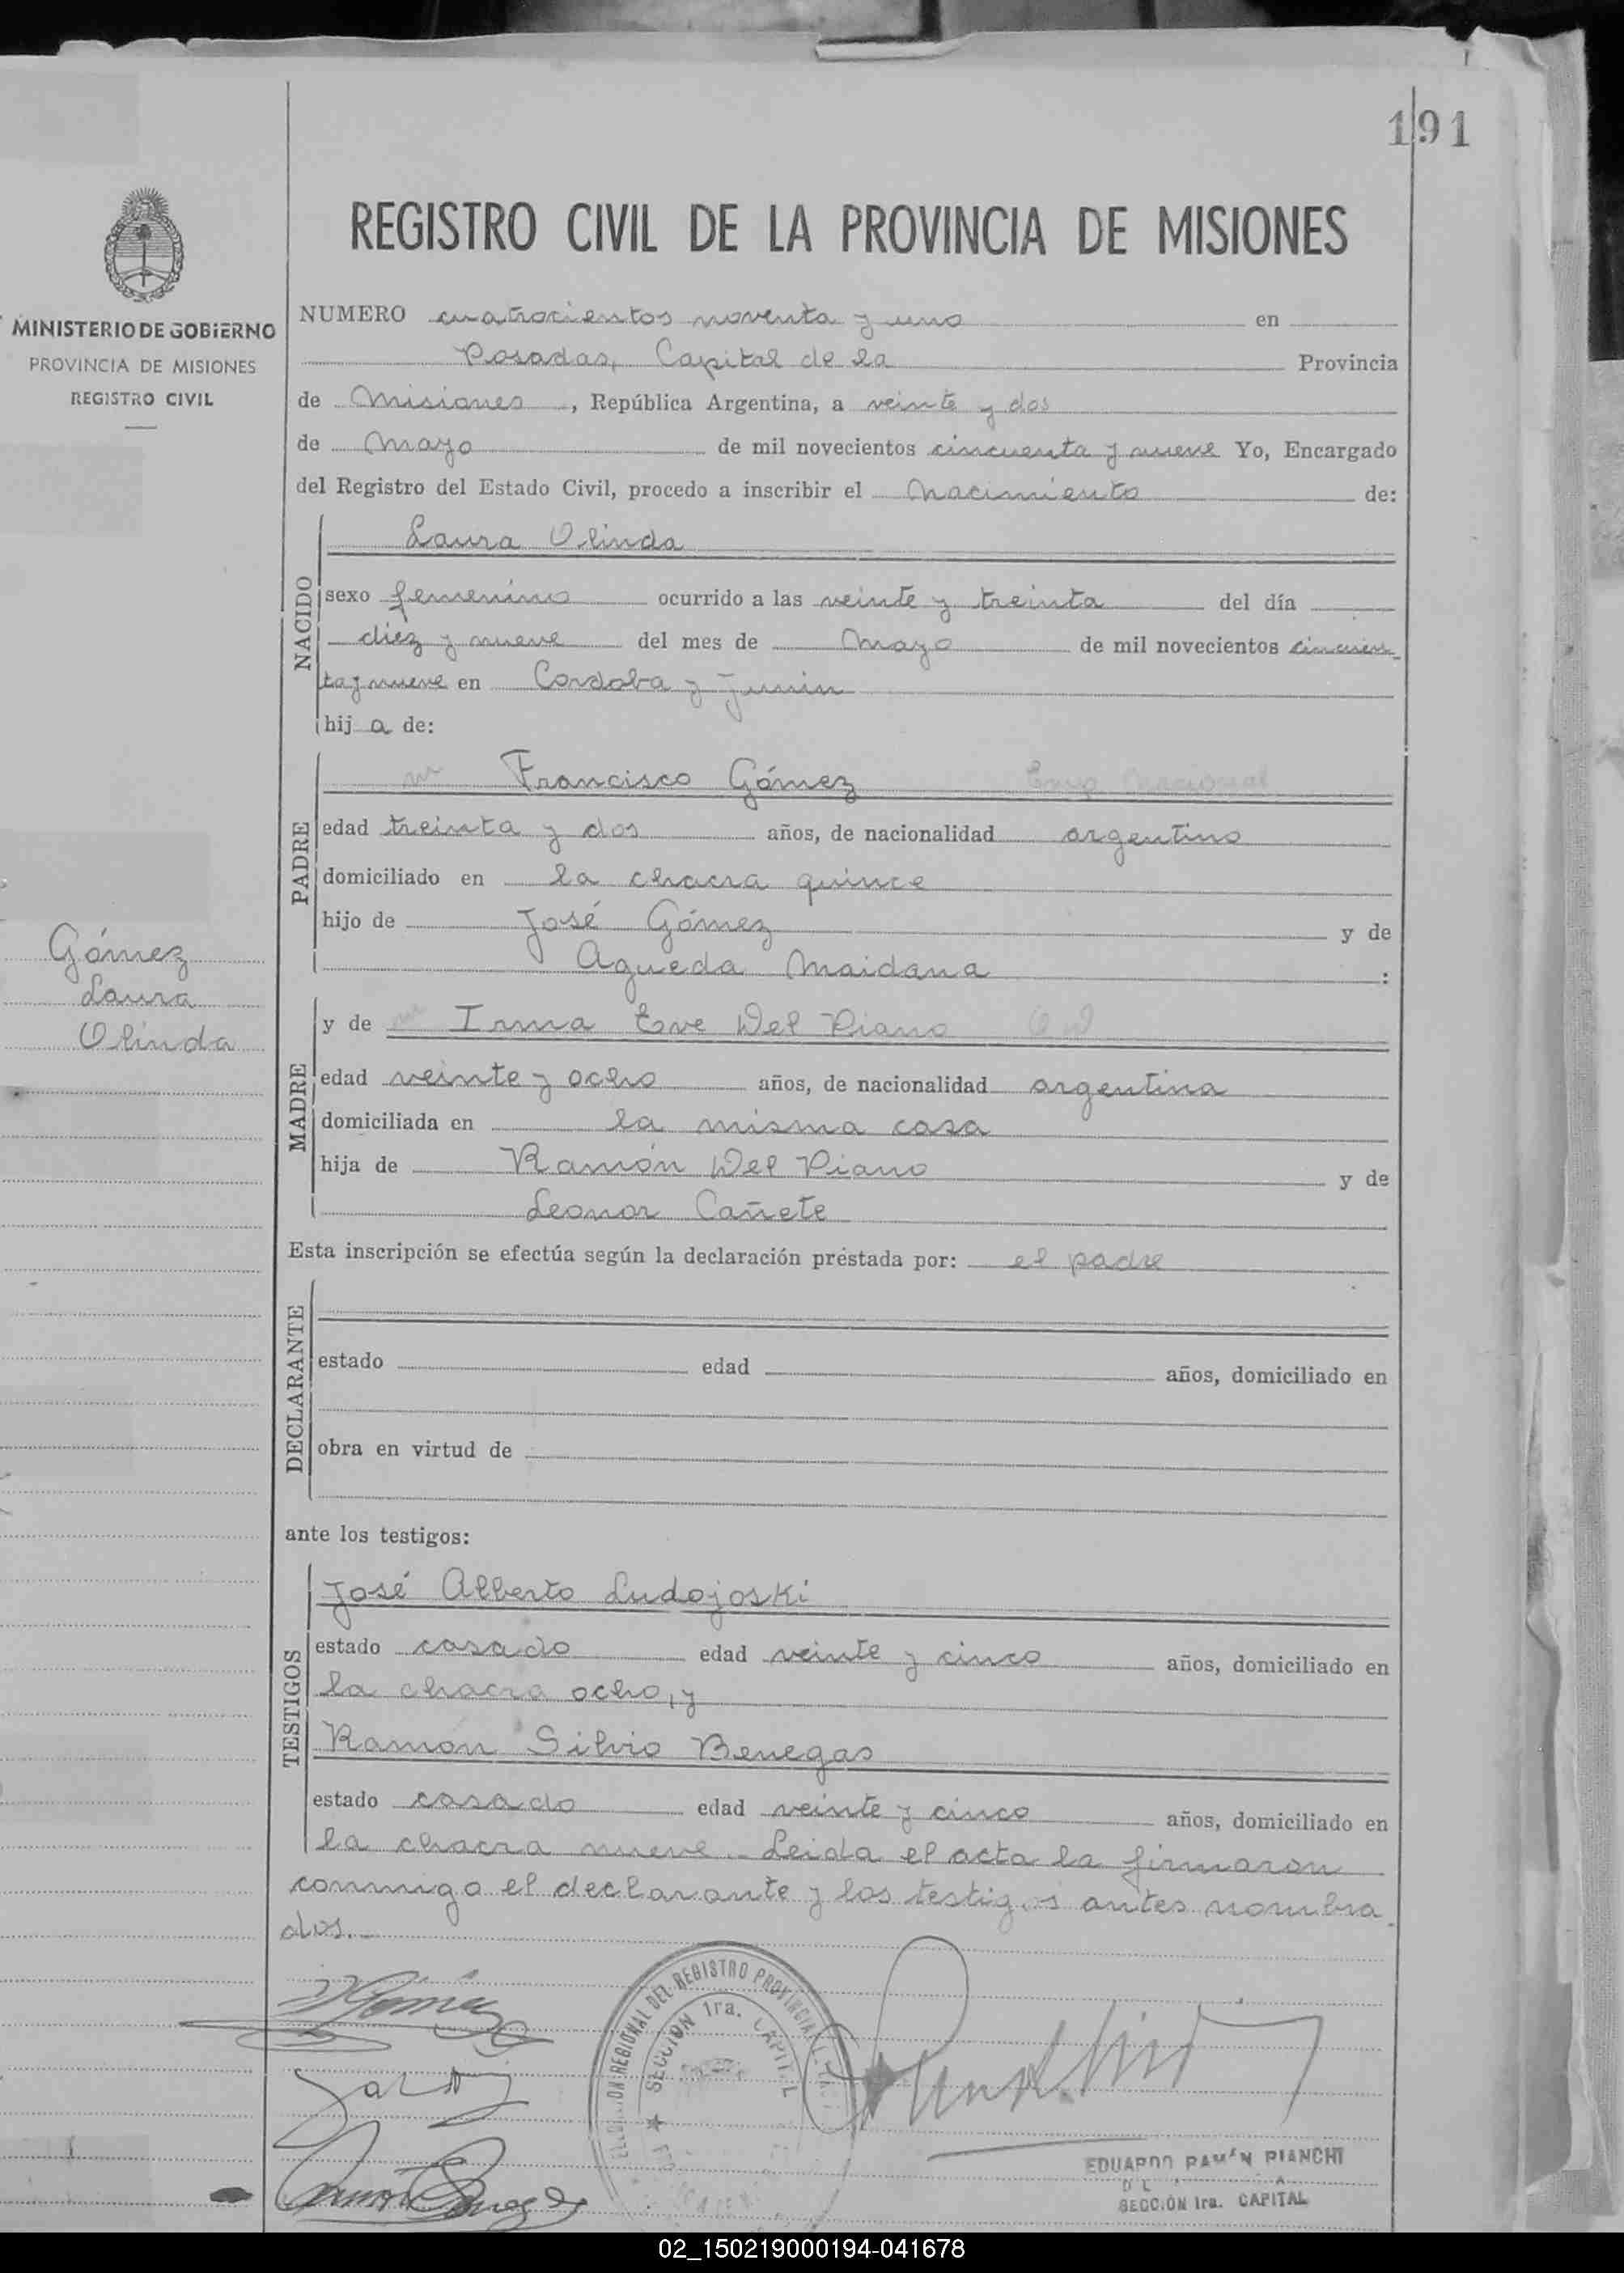 191
REGISTRO CIVIL DE LA PROVINCIA DE MISIONES
MINISTERIO DE GOBIERNO
PROVINCIA DE MISIONES
REGISTRO CIVIL
NUMERO cuatrocientos noventa y uno en
Posadas, Capital de la Provincia
de Misiones, República Argentina, a veinte y dos
de Mayo de mil novecientos cincuenta y nueve Yo, Encargado
del Registro del Estado Civil, procedo a inscribir el Nacimiento de:
NACIDO
Laura Olinda
sexo femenino ocurrido a las veinte y treinta del día
diez y nueve del mes de Mayo de mil novecientos cincuen
ta y nueve en Cordoba y Junin
hija de:
PADRE
Francisco Gómez
edad treinta y dos años, de nacionalidad argentino
domiciliado en la chacra quince
hijo de José Gómez y de
Agueda Maidana :
Gómez
Laura
Olinda
MADRE
y de Irma Eve Del Piano
edad veinte y ocho años, de nacionalidad argentina
domiciliada en la misma casa
hija de Ramón Del Piano y de
Leonor Cañete
Esta inscripción se efectúa según la declaración prestada por: el padre
DECLARANTE
estado edad años, domiciliado en
obra en virtud de
ante los testigos:
TESTIGOS
José Alberto Ludojoski
estado casado edad veinte y cinco años, domiciliado en
la chacra ocho, y
Ramón Silvio Benegas
estado casado edad veinte y cinco años, domiciliado en
la chacra nueve.- Leida el acta la firmaron
conmigo el declarante y los testigos antes nombra
dos.-
REGIONAL DEL REGISTRO PROVINCIAL
SECCION 1ra. CAPITAL
EDUARDO RAMÓN BIANCHI
SECCIÓN 1ra. CAPITAL
02_150219000194-041678